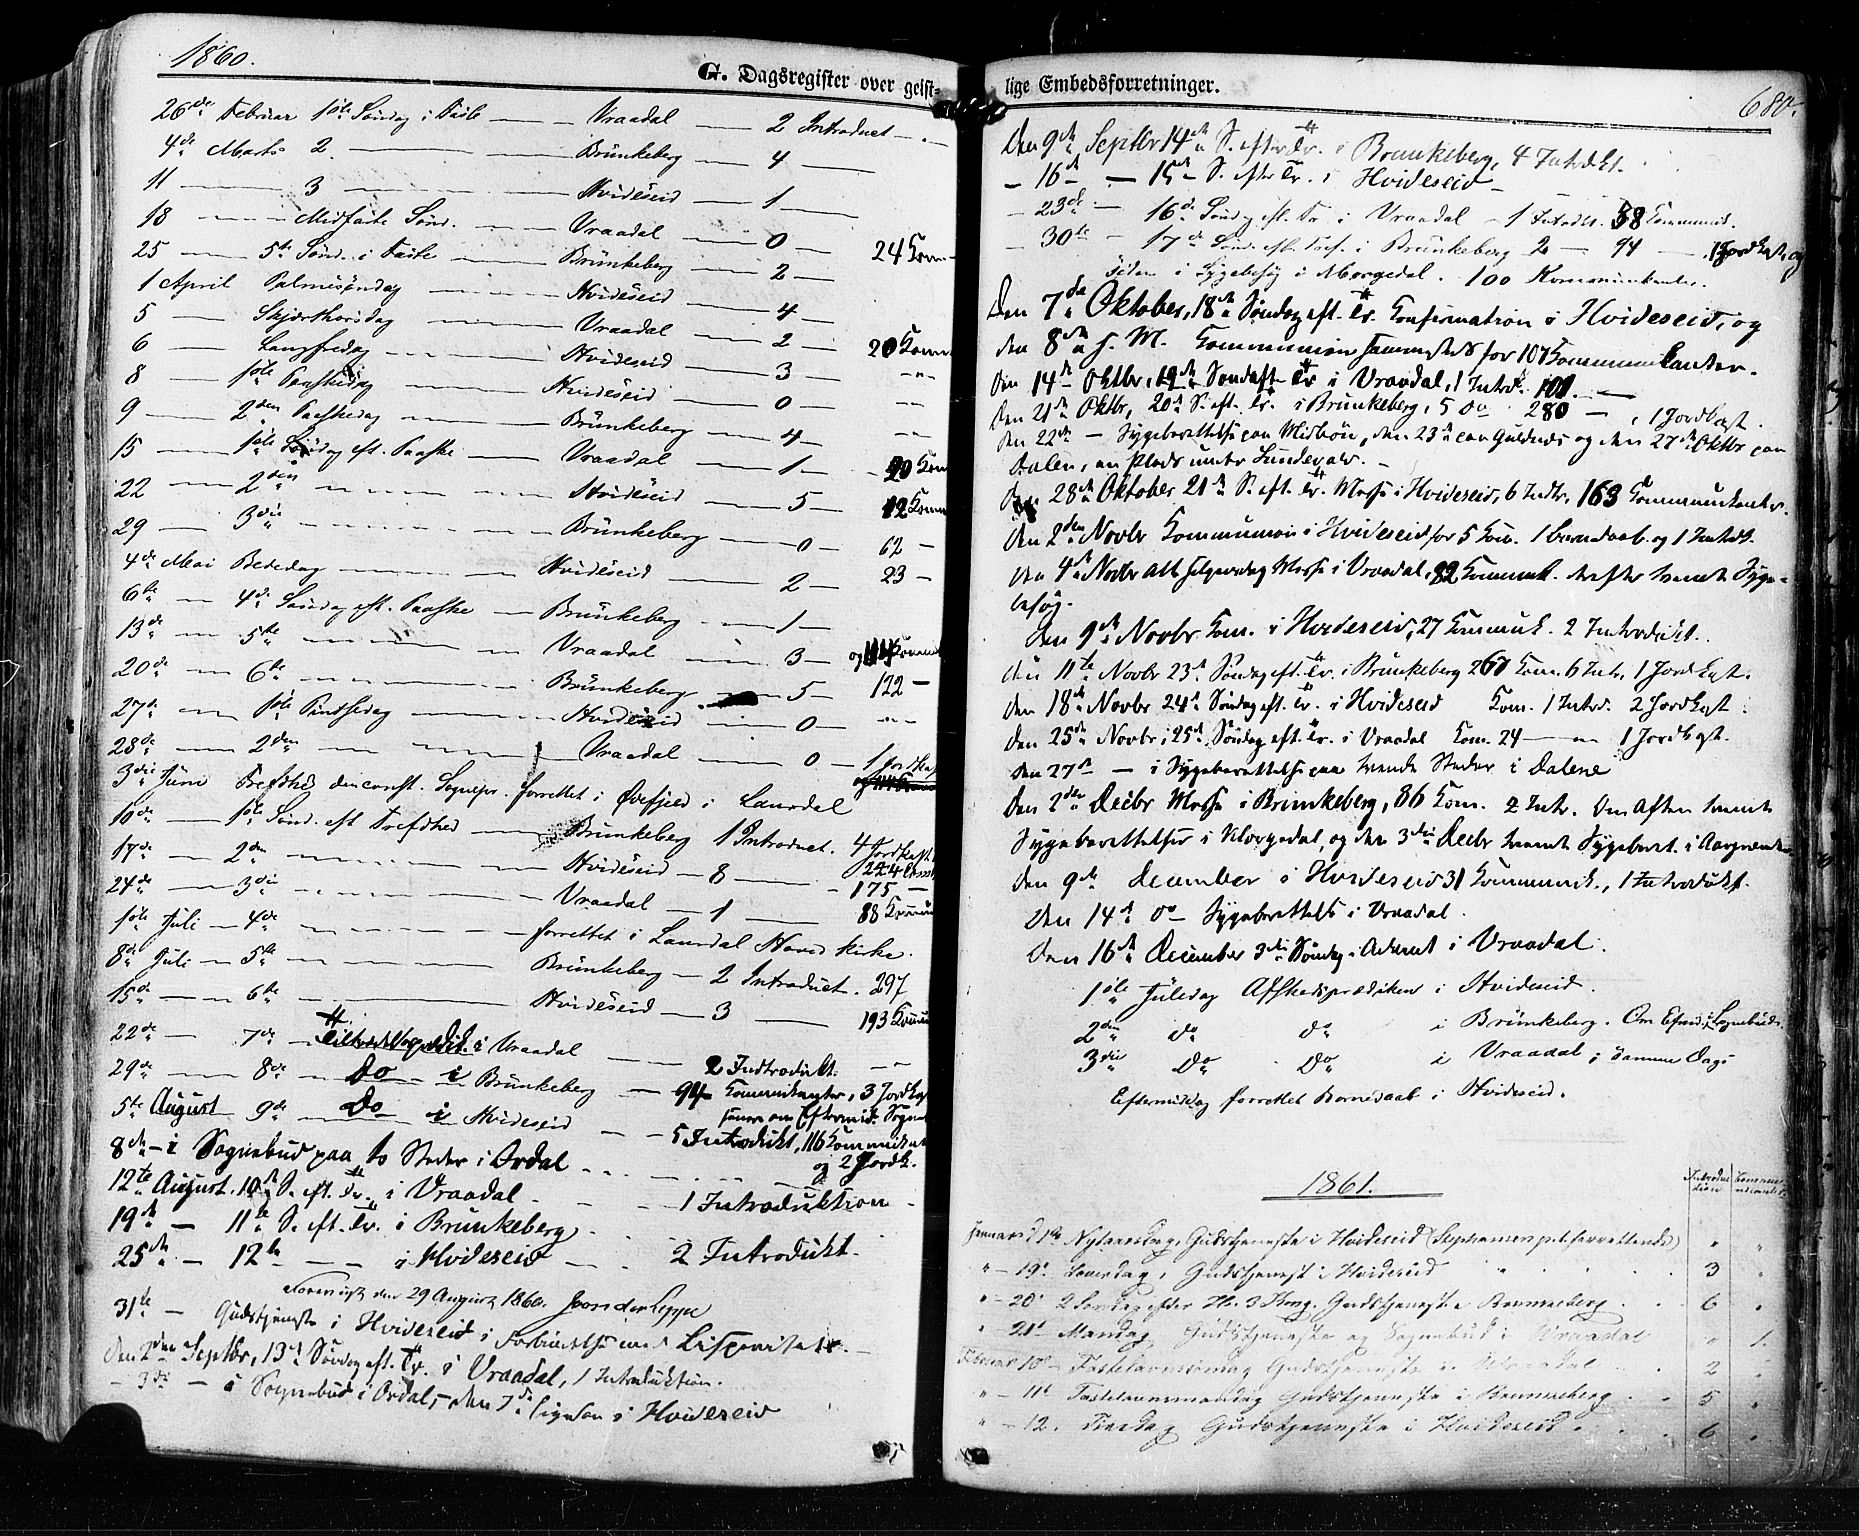 1860.
G. Dagsregister over geist-
26de Februar 1ste Søndag i Faste — Vraadal — 2 Introduct —
4de Marts 2. — Brünkeberg — 4 —
11 — 3 — Hvideseid — 1 —
18 — Midfaste Sønd. — Vraadal — 0 —
25 — 5te Sønd. i Faste — Brünkeberg — 2 — 24 Kom
1 April Palmesøndag — Hvideseid — 4 —
5 — Skjærthorsdag — Vraadal — 2 — 20 Kom
6 — Langfredag — Hvideseid — 3 — "
8 — 1ste Paaskedag — Hvideseid — 0 — "
9 — 2den Paaskedag — Brünkeberg — 4 — "
15 — 1ste Søndag eft. Paaske — Vraadal — 1 — Kom
22 — 2den — Hvideseid — 5 — 12 Komm
29 — 3die — Brünkeberg — 0 — 62 —
4de Mai Bededag — Hvideseid — 2 — 23 —
6te — 4de Søndag eft. Paaske — Brünkeberg — 1 —
13de — 5te — Vraadal — 3 — og Komm
20de — 6te — Brünkeberg — 5 — 122 —
27de — 1ste Pintsedag — Hvideseid — 0 — "
28de — 2den — Vraadal — 0 — 1 Jordkast
3die Juni Trefdhed den const. Sognepr. forrettet i Øvefjeld i Laurdal
10de — 1ste Sønd. eft Trefdhed — Brünkeberg 1 Introduct. 4 Jordkast
17de — 2den — Hvideseid — 8 — 224 Com
24de — 3die — Vraadal — 1 — 175 —
1ste Juli — 4de — forrettet i Laurdal Hoved Kirke. 88 Commu
8de Juli — 5te — Brünkeberg — 2 Introduct. 297
15de — 6te — Hvideseid — 3 — 193 Commu
22de — 7de — i Vraadal — "
29de — 8de — Do i Brünkeberg — 2 Indtrodukt.
5te August 9de — Do i Hvideseid — 94 Kommunikanter, 3 Jordkast
samme Eftermid. Sogne
8de — i Sognebud paa to Steder i Ordal — 5 Introdukt, 116 Kommunikat
og 2 Jordk.
12te August. 10de S. eft. Tr. i Vraadal — 1 Introduktion —
19de — 11te S. eft. Tr. i Brünkeberg
25de — 12te — i Hvideseid — 2 Introdukt.
den 29 August 1860.
31te — Gudstjeneste i Hvideseid i Forbindelse med Bispevisitats.
Den 2den Septbr, 13de Søndag eft. Tr. i Vraadal, 1 Introduktion.
— 3die — i Sognebud i Ordal, — den 7de i Hvideseid
lige Embedsforretninger.
680.
Den 9de Septbr 14de S. efter Tr. i Brunkeberg, 4 Intrdkt.
— 16de — 15de S. efter Tr. i Hvideseid —
— 23de — 16de Søndag eft. Tr. i Vraadal — 1 Introd. 58 Kommunik.
— 30te — 17de Sønd. eft. Tref. i Brünkeberg 2 — 94 — 1 Jordkast, og
siden i Sygebesøg i Morgedal. 100 Kommunikanter.
Den 7de Oktober, 18de Søndag eft. Tr. Confirmation i Hvideseid, og
den 8de s. M. Kommunion sammesteds for 107 Kommunikanter.
Den 14de Oktbr, 19de Sønd eft Tr i Vraadal, 1 Intrd. 101. —
Den 21de Oktbr, 20de S. eft. Tr. i Brünkeberg, 5 do 280 — , 1 Jordkast.
Den 22de — Sygeberettelse paa Midbøe, den 23de paa Guldnes og den 27de Oktbr paa
Dalen, en Plads under Lundevald. —
Den 28de Oktober 21de S. eft. Tr. Messe i Hvideseid, 6 Indtr. 163 Kommunikanter.
Den 2den Novbr Kommunion i Hvideseid for 5 Kom. 1 Barnedaab. og 1 Intrdt.
Den 4de Novbr Allehelgensdag Messe i Vraadal, 82 Kommunk. derefter Syge-
besøg.
Den 9de Novbr Kom. i Hvideseid, 27 Kommunik. 2 Introdukt.
Den 11te Novbr 23de Søndag eft. Tr. i Brunkeberg 267 Kom. 6 Intr. 1 Jordkast.
Den 18de Novbr 24de Søndag eft. Tr. i Hvideseid Kom. 1 Intrd. 2 Jordkast.
Den 25de Novbr, 25de Søndag eft. Tr. i Vraadal Kom. 24 — 1 Jordkast.
Den 27de — i Sygeberettelse paa tvende Steder i Dalene
Den 2den Decbr Messe i Brunkeberg, 86 Kom. 2 Intr. Om Aften tvende
Sygeberettelser i Morgedal, og den 3die Decbr tvende Sygeberet. i
Den 9de December i Hvideseid 31 Kommunik., 1 Introdukt.
Den 14de do Sygeberettels i Vraadal.
Den 16de December 3die Søndag i Advent i Vraadal.
1ste Juledag Afskedsprædiken i Hvideseid.
2den do do i Brünkeberg. Om Efmd. i Sognebud.
3die Do Do i Vraadal; samme Dags
Eftermiddag forrettet Barnedaab i Hvideseid.
1861.
Introduction Kommunikanter
Januar d 1ste Nytaarsdag, Gudstjeneste i Hvideseid (forrettende) " "
" — 19de Lørverdag, Gudstjeneste i Hvideseid 3 "
" — 20de 2 Søndag efter H. 3 Kong. Gudstjeneste i Brunkeberg 6 "
" 21de Mandag Gudstjeneste og Sognebud i Vraadal " 1.
Februar 10de — Fastelavnssøndag Gudstjeneste i Vraadal 2 "
" — 11te Fastelavnsmandag Gudstjeneste i Brunkeberg 5 "
" — 12. Tirsdag Gudstjeneste i Hvideseid 6 "